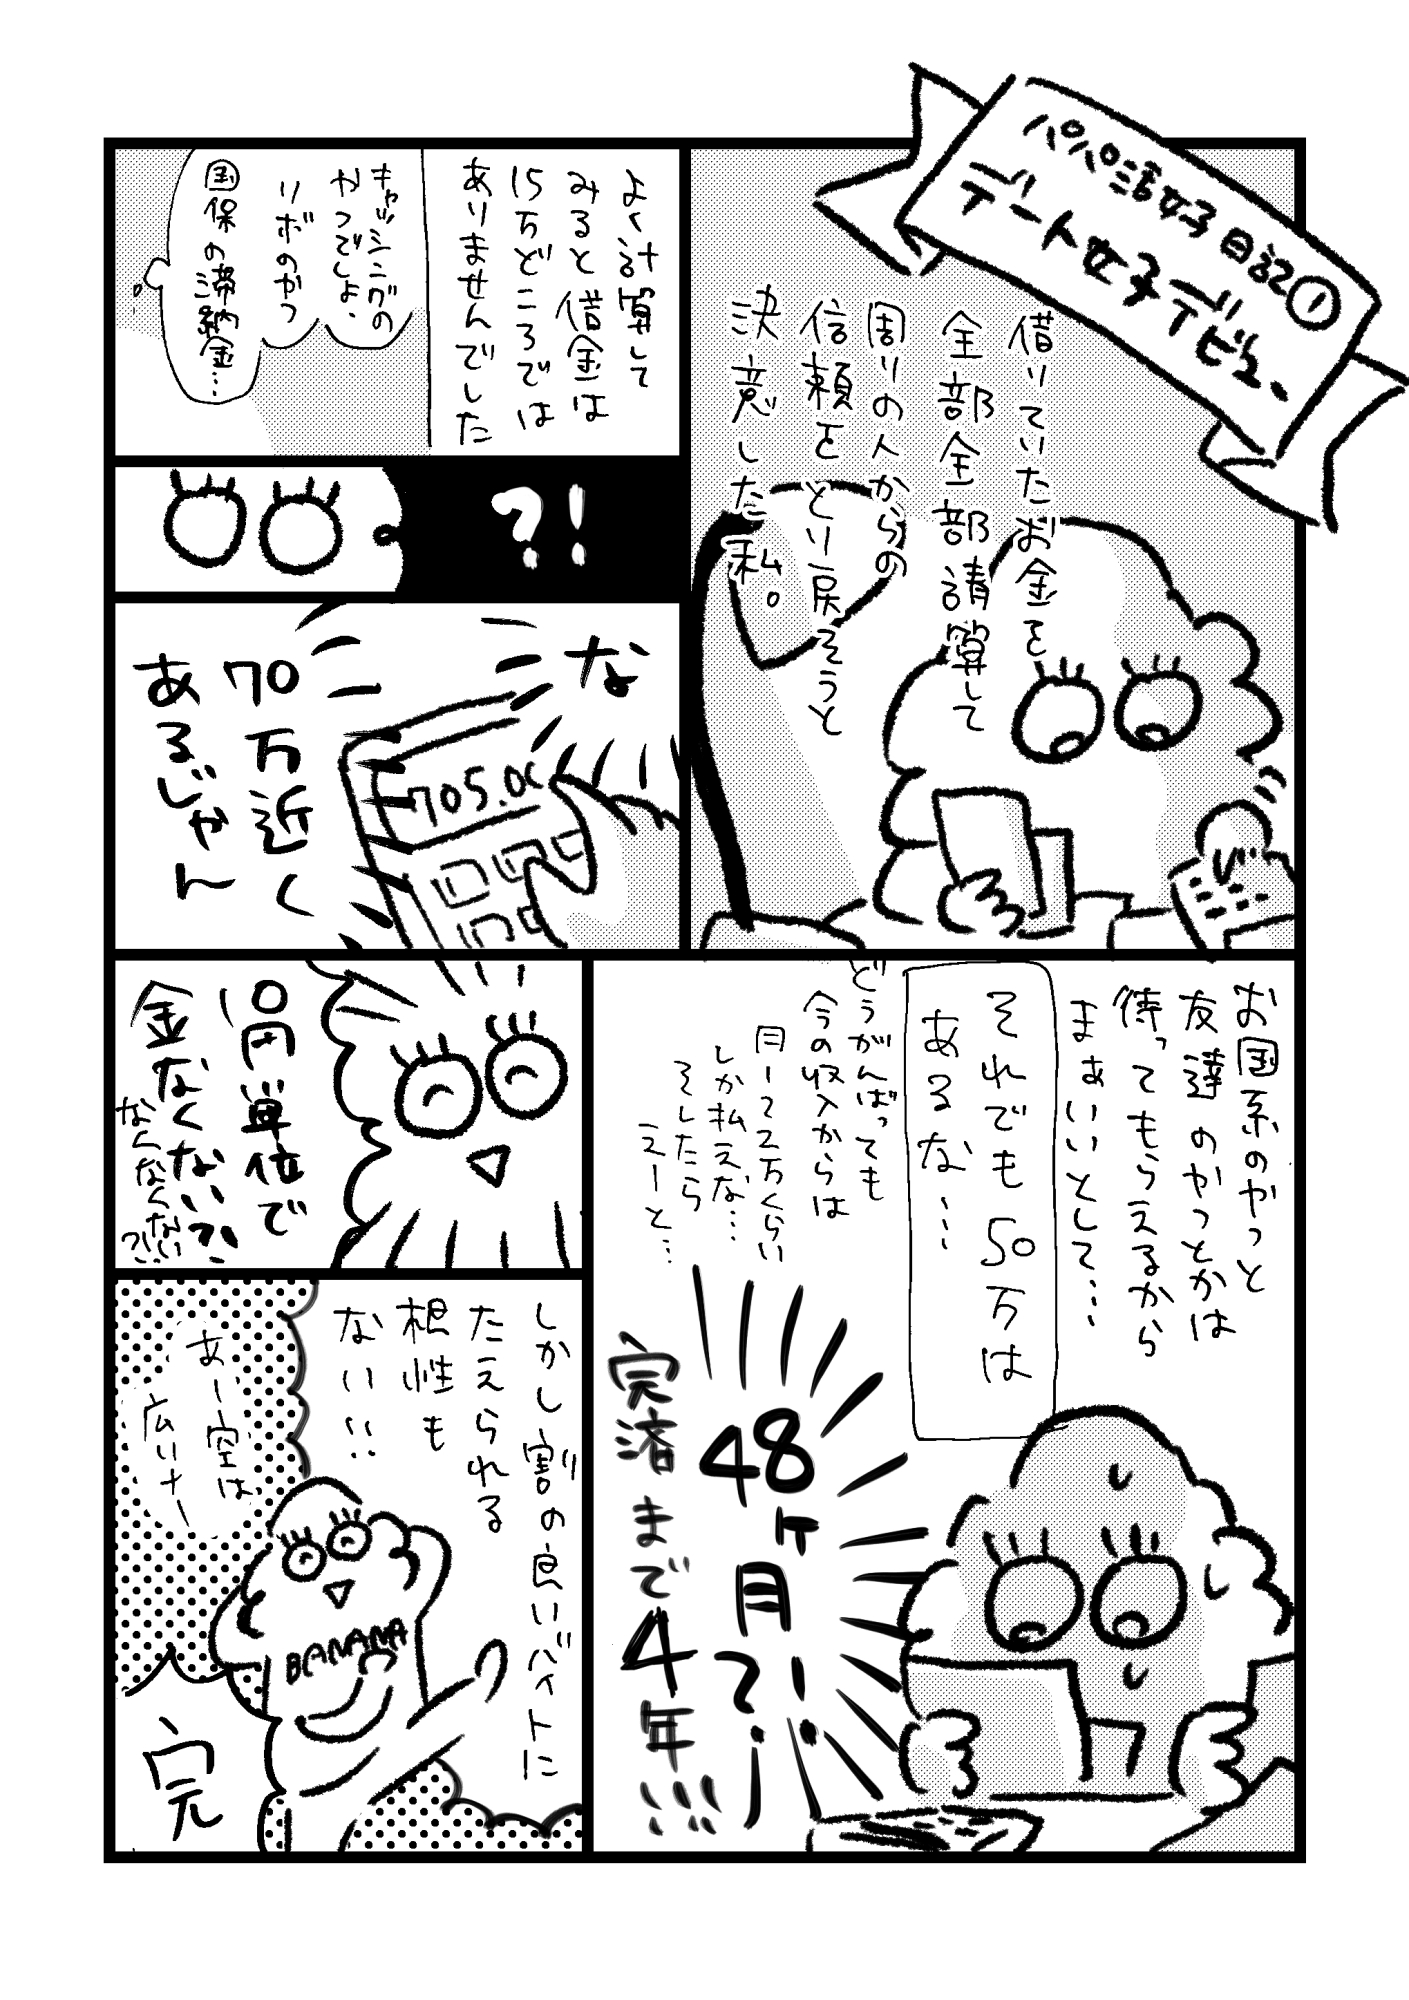 パパ活女子日記①
デート女子デビュー
借りていたお金を
全部全部請算して
周りの人からの
信頼をとり戻そうと
決意した私。
よく計算して
みると借金は
15万どころでは
ありませんでした
キャッシングの
やつでしょ、
リボのやつ
国保の滞納金…
?!
な
70万近く
あるじゃん
705.00
お国系のやつと
友達のやつとかは
待ってもらえるから
まぁいいとして…
それでも50万は
あるな…
どうがんばっても
今の収入からは
月1〜2万くらい
しか払えな…
そしたら
えーと…
48
ヶ月?!
完済まで4年!!!
円単位で
金なくない?!
なくなくない
?!
しかし割の良いバイトに
たえられる
根性も
ない!!
あー空は
広いナー
BANANA
完